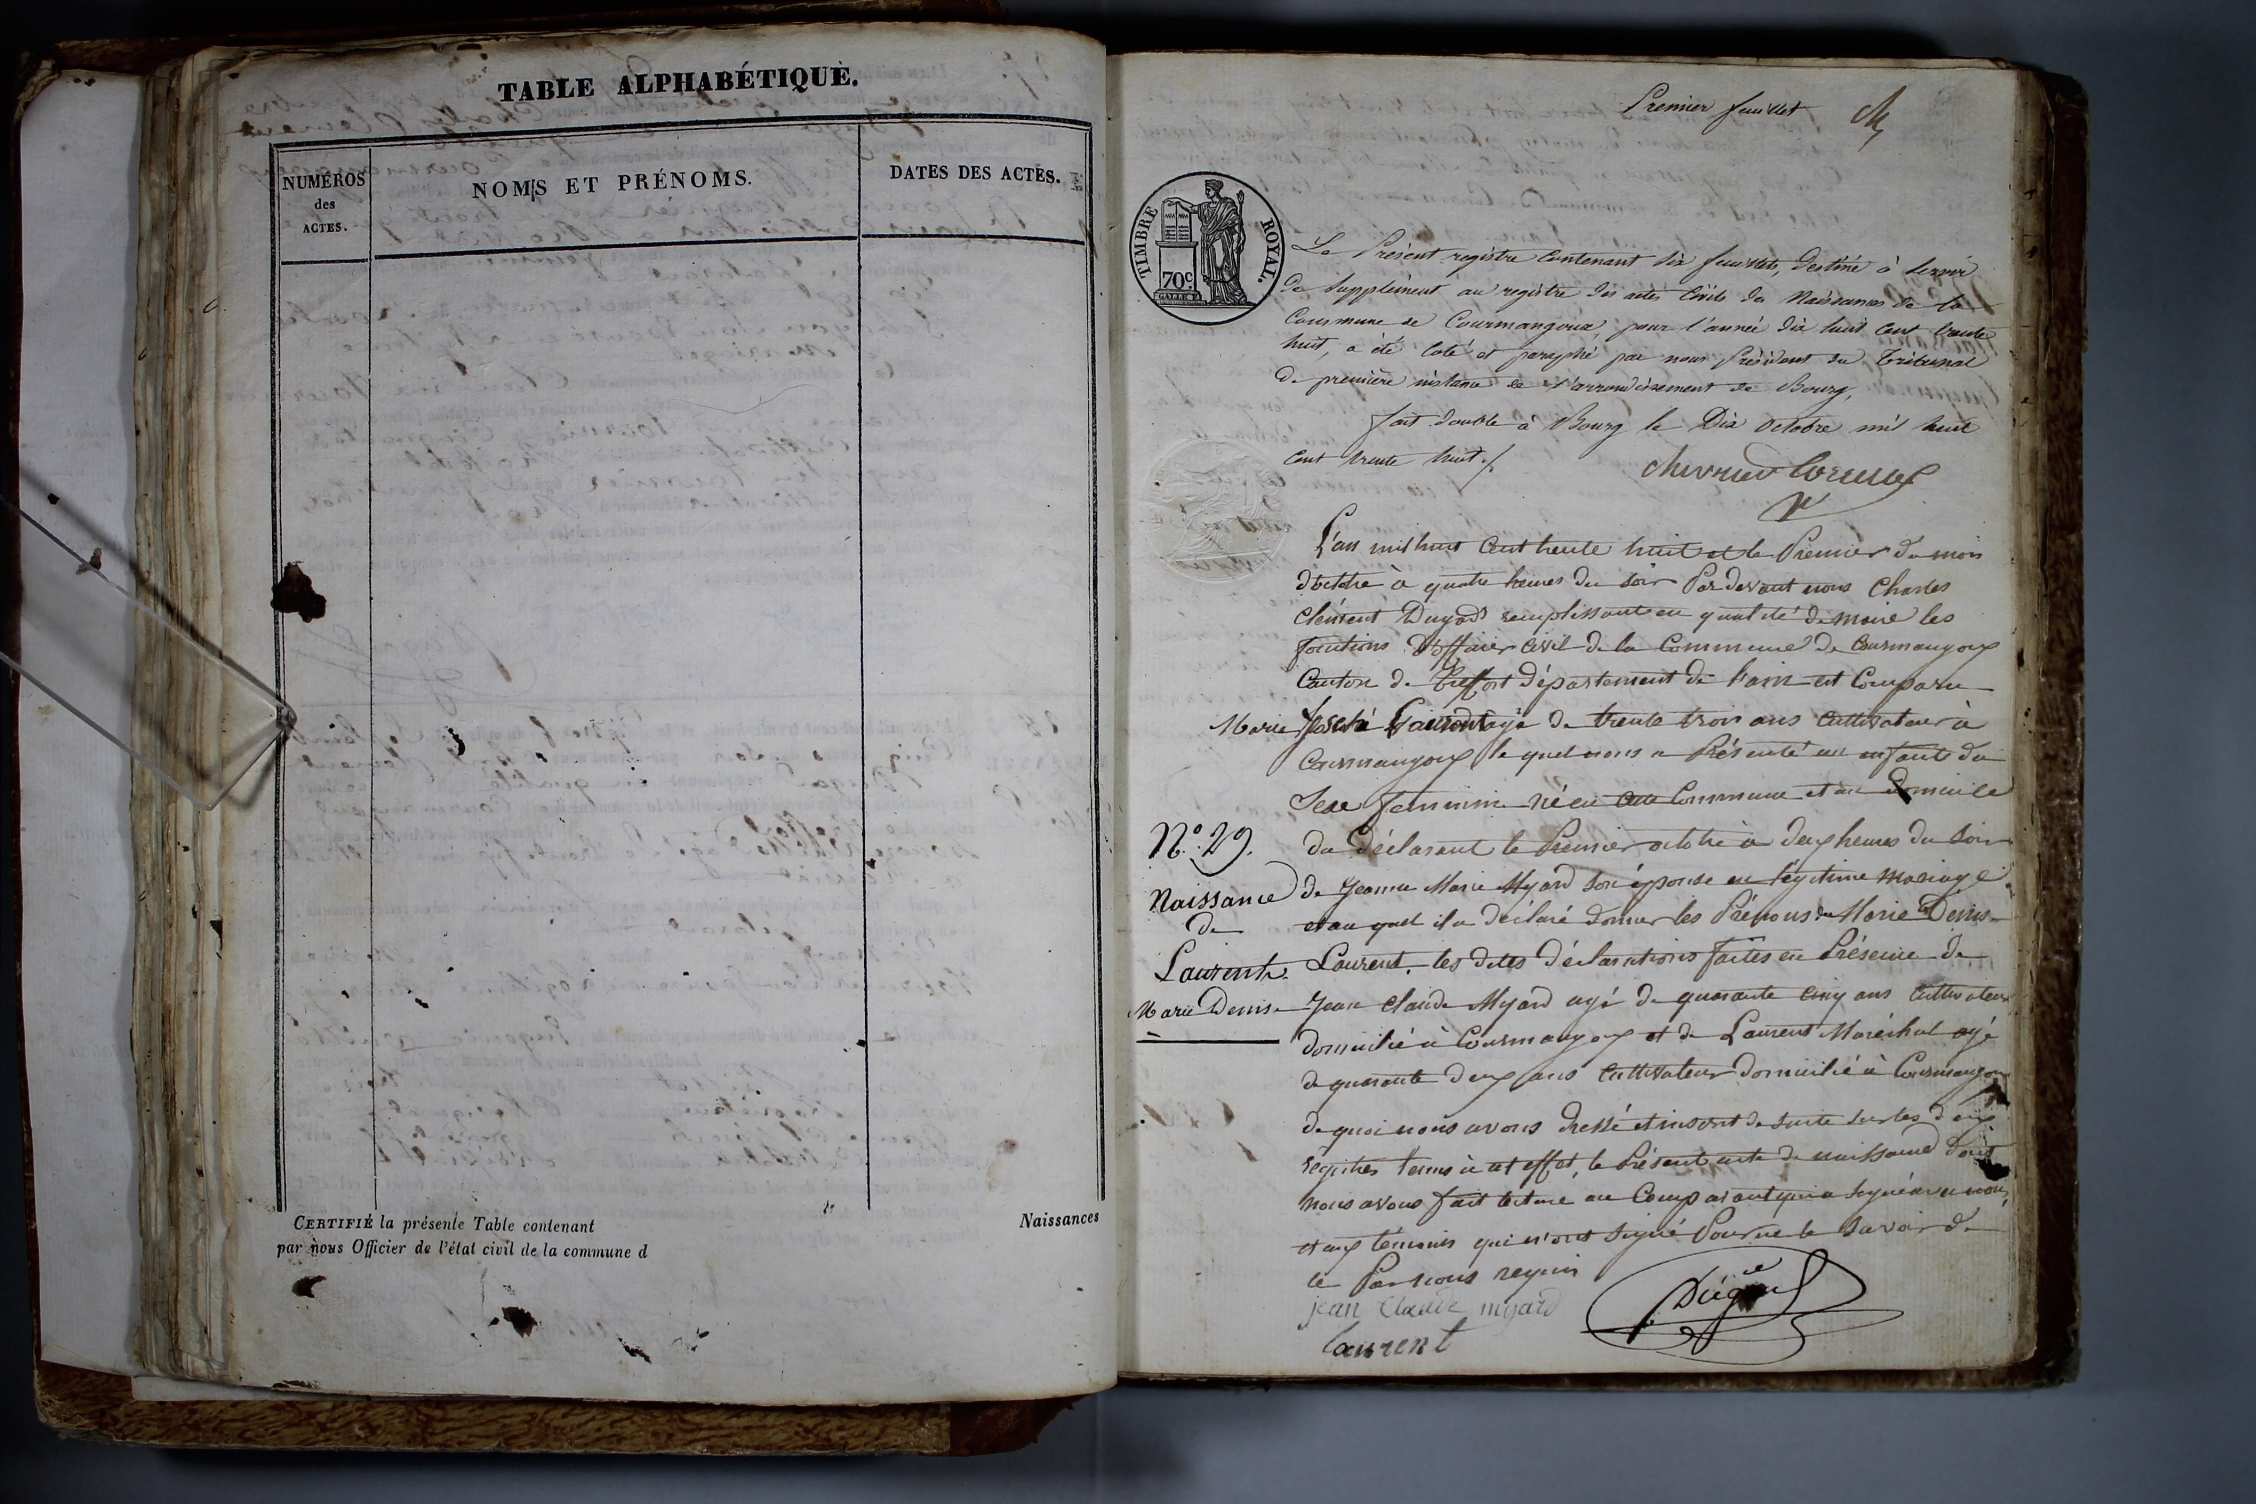 TABLE ALPHABÉTIQUE.
NUMÉROS
des
ACTES.
NOMS ET PRÉNOMS.
DATES DES ACTES.
CERTIFIÉ la présente Table contenant
par nous Officier de l'état civil de la commune d
Naissances
Premier feuillet
TIMBRE ROYAL.
70c.
Le Présent registre contenant dix feuillets, destiné à servir
de Supplément au registre des actes civils de Naissances de la
Commune de Courmangoux, pour l'année dix huit cent trente
huit, a été coté et paraphé par nous Président du Tribunal
de première instance de l'arrondissement de Bourg,
fait double à Bourg le Dix octobre mil huit
cent trente huit ./.
L'an mil huit Cent trente huit et le Premier du mois
d'octobre à quatre heures du soir Par devant nous Charles
Clément Dugad remplissant en qualité de maire les
fonctions d'officier civil de la Commune de Courmangoux
Canton de Treffort département de l'ain est Comparu
Marie Joseph Laurent agé de trente trois ans Cultivateur à
Courmangoux le quel nous a Présenté un enfant du
Sexe féminin né en Cette Commune et au Domicile
du Déclarant le Premier octobre à deux heures du soir
de Jeanne Marie Myard son épouse en légitime mariage
et au quel il a déclaré donner les Prénoms de Marie Denise
Laurent. les dites déclarations faites en Présence de
Jean Claude Myard agé de quarante cinq ans Cultivateur
domicilié à Courmangoux et de Laurent Maréchal agé
de quarante deux ans Cultivateur domicilié à Courmangoux
de quoi nous avons dressé et inscrit de suite sur les deux
registres tenus à cet effet, le Présent acte de naissance dont
nous avons fait lecture au Comparant qui a signé avec nous,
et aux témoins qui n'ont signé Pour ne le savoir de
ce Par nous requis
No. 29.
Naissance
de
Laurent
Marie Denise
jean Claude myard
Dugad
laurent